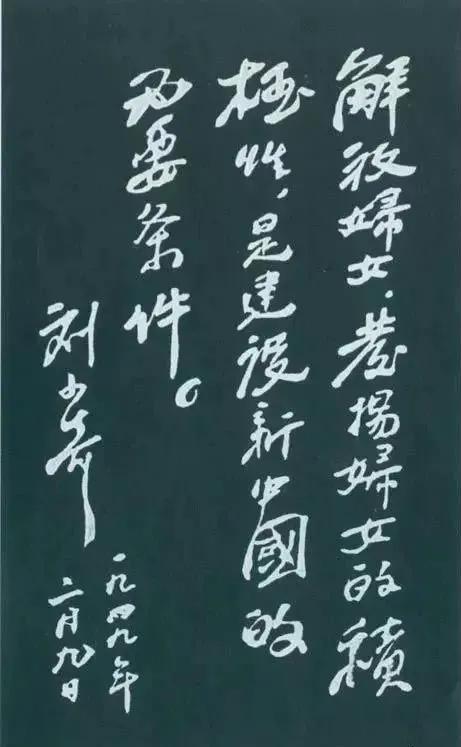 解放婦女，發揚婦女的積
極性，是建設新中國的
必要条件。
刘少奇
一九四九年
二月九日